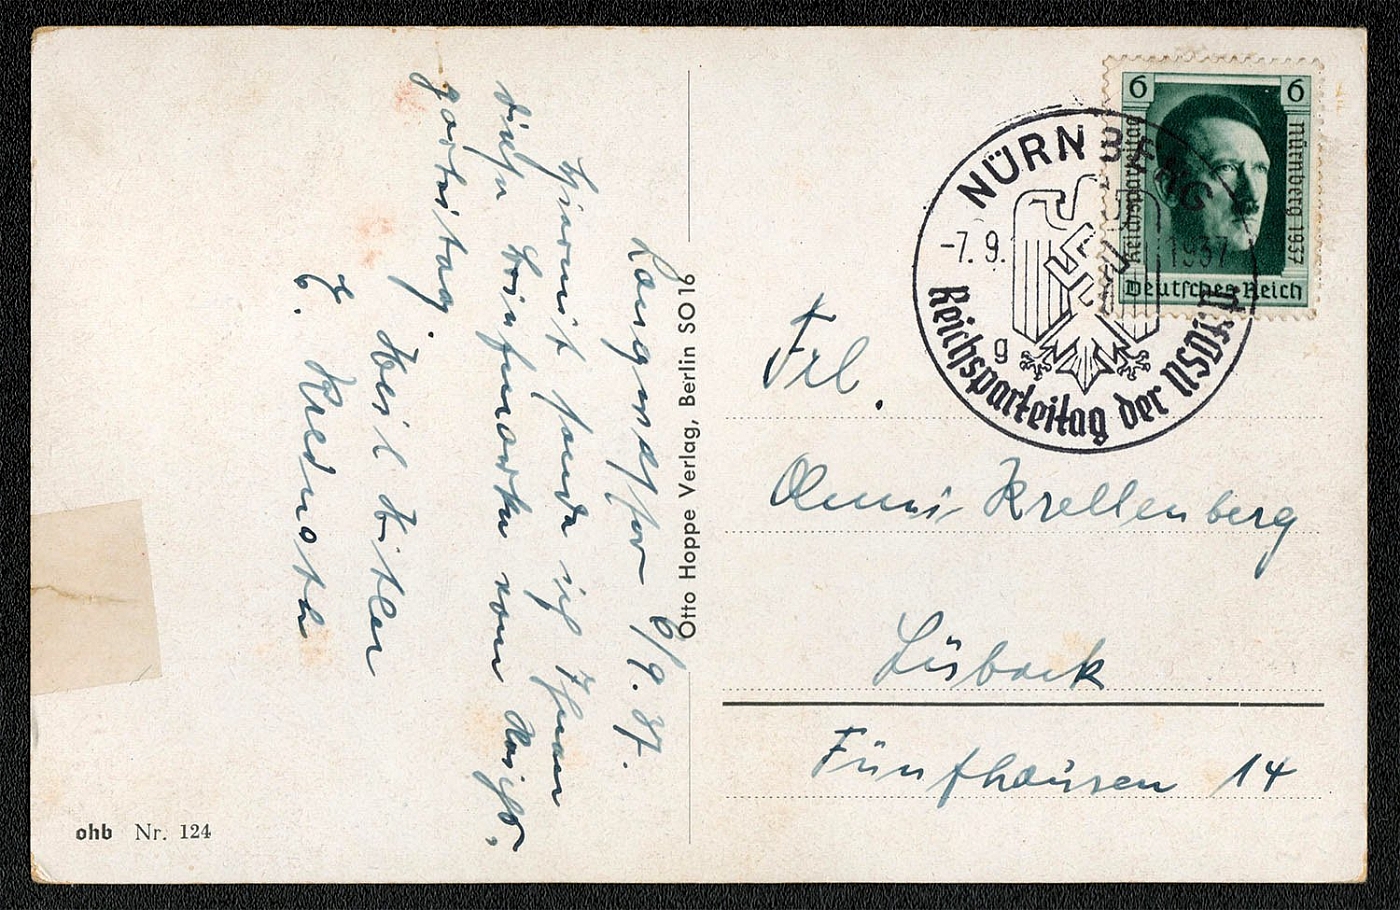 Langwasser 6/9.37.
Hiermit sende ich Ihnen
diese Briefmarke vom Reichs-
parteitag.
Heil Hitler
ohb Nr. 124
Otto Hoppe Verlag, Berlin SO 16
NÜRNBERG
-7.9. 1937
g
Reichsparteitag der NSDAP
6 6
Reichsparteitag
Nürnberg 1937
Deutsches Reich
Frl.
Anni Krellenberg
Lübeck
Fünfhausen 14